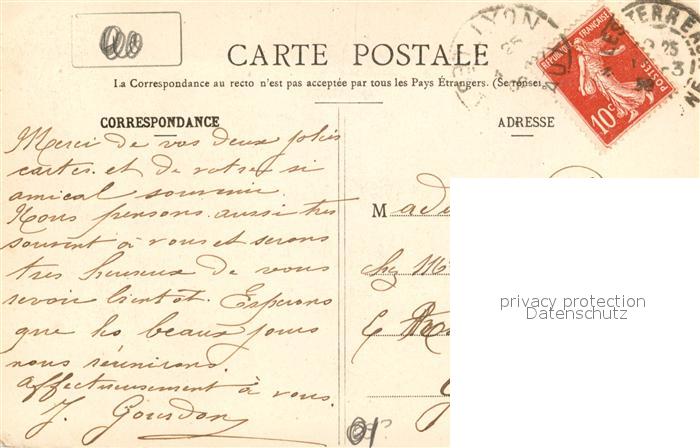 CARTE POSTALE
La Correspondance au recto n'est pas acceptée par tous les Pays Étrangers. (Se rense
CORRESPONDANCE
Merci de vos deux jolies
cartes et de votre si
amical souvenir.
Nous pensons aussi très
souvent à vous et serons
très heureux de vous
revoir bientôt. Espérons
que les beaux jours
nous réuniront.
Affectueusement à vous.
J. Gourdon
LYON
RÉPUBLIQUE FRANÇAISE
POSTES
10c
ADRESSE
Mad
chez M
6
privacy protection
Datenschutz
01